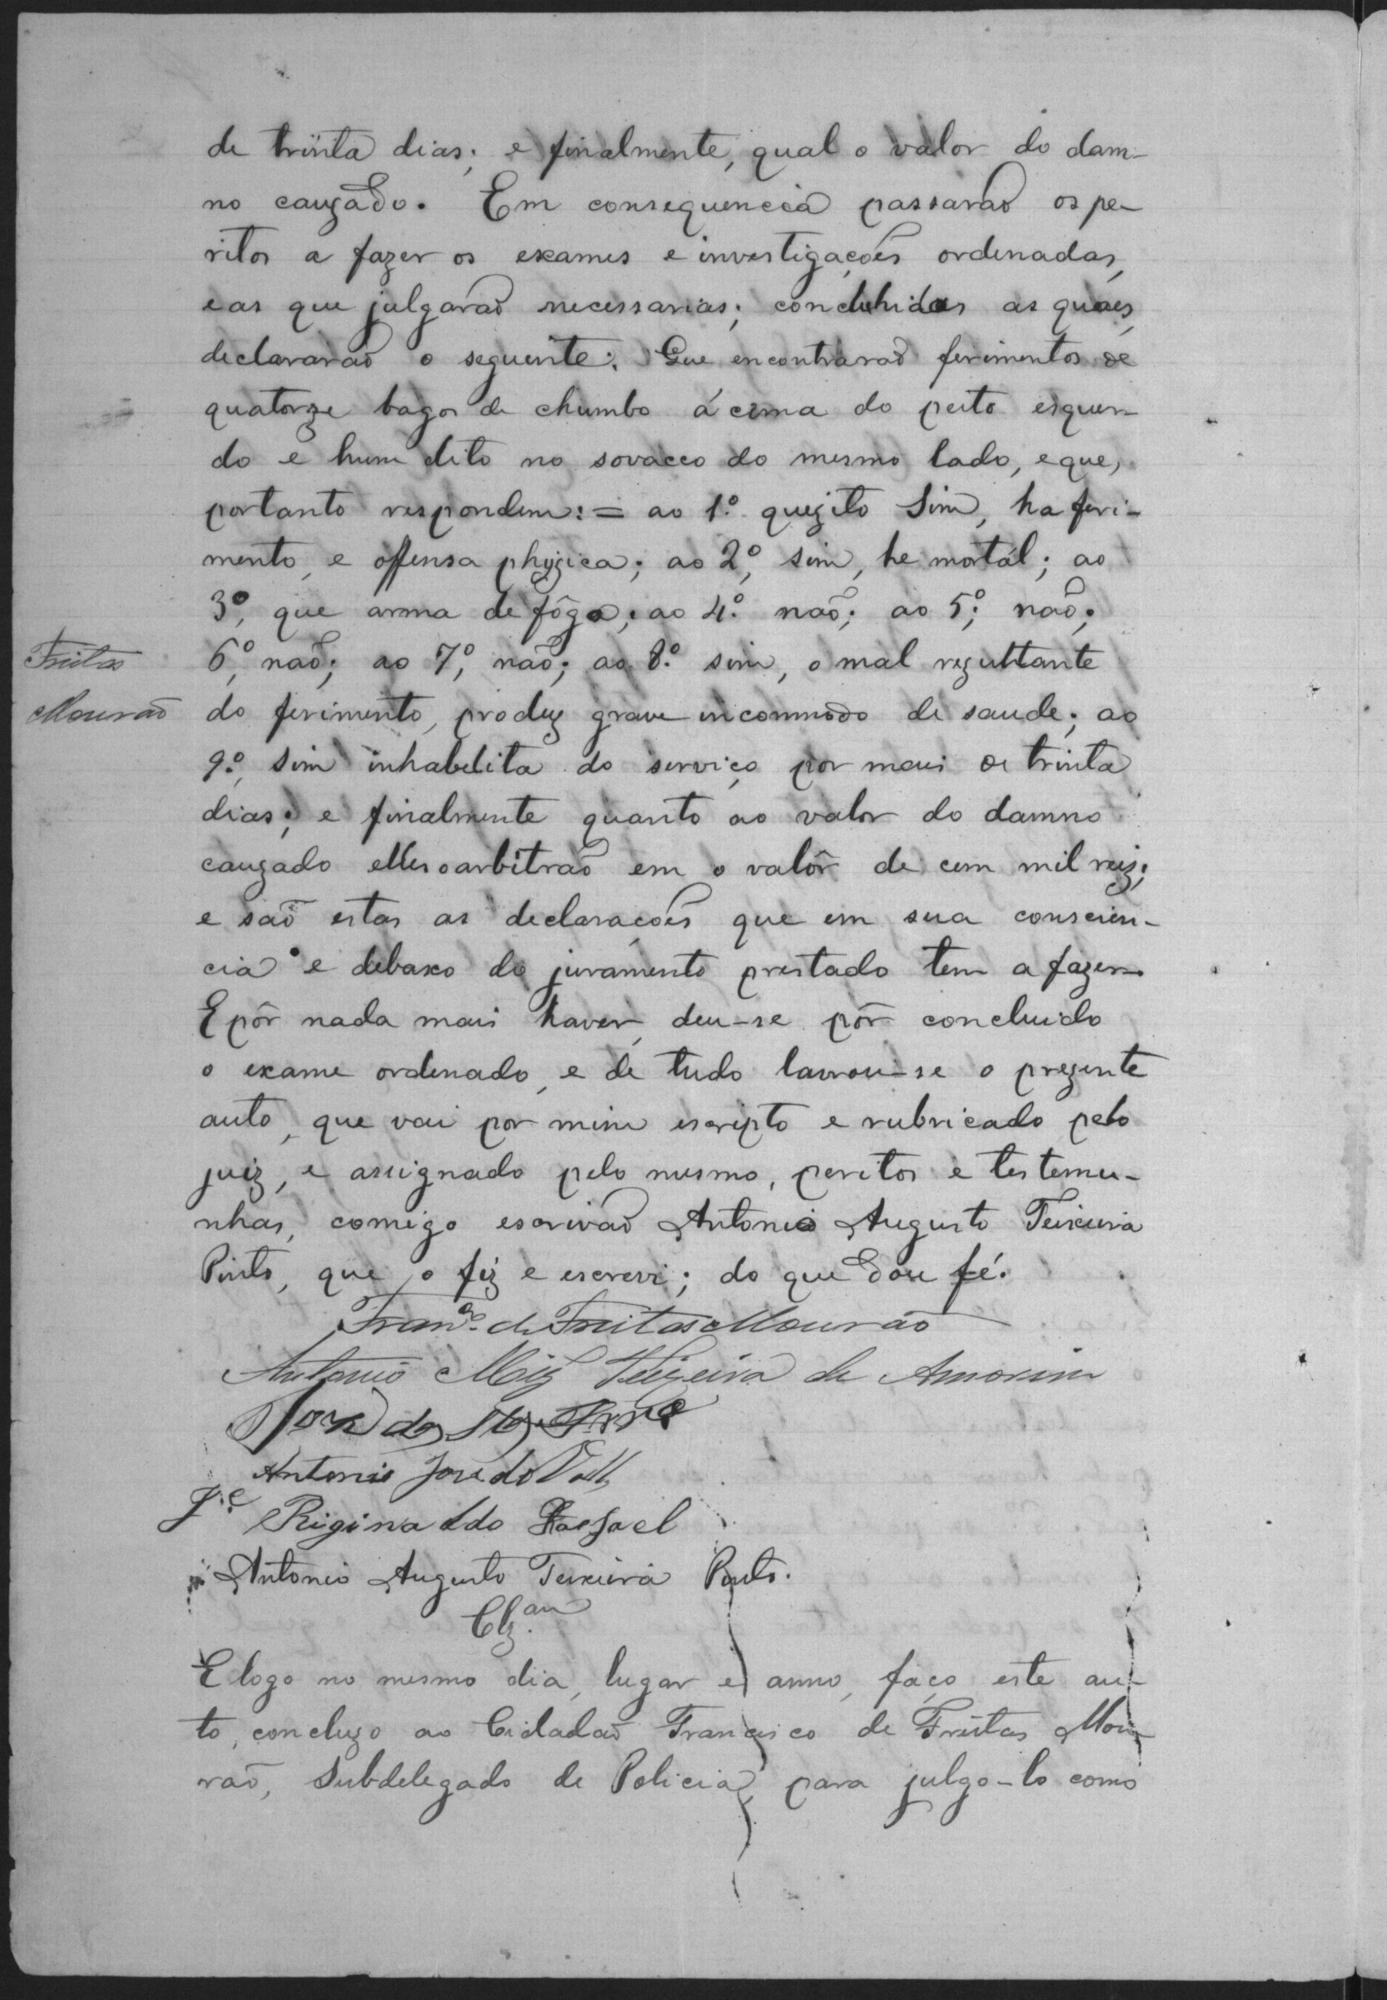 de trinta dias; e finalmente, qual o valor do dam-
no cauzado. Em consequencia passarão os pe-
ritos a fazer os exames e investigações ordenadas,
e as que julgarão necessarias; concluhidas as quaes,
declararão o seguinte: Que encontrarão ferimentos de
quatorze bagos de chumbo ácima do peito esquer-
do e hum dito no sovacco do mesmo lado, e que,
portanto respondem: = ao 1º quezito Sim, ha feri-
mento, e offensa phyzica; ao 2º, sim, he mortál; ao
3º, que arma de fôgo; ao 4º não; ao 5º, não;
Freitas
Mourão
6º, não; ao 7º, não; ao 8º sim, o mal rezultante
do ferimento, produz grave incommodo de saude; ao
9º, sim inhabelita do serviço por mais de trinta
dias; e finalmente quanto ao valor do damno
cauzado elles o arbitrão em o valôr de cem mil reis;
e são estas as declarações que em sua conscien-
cia e debaxo do juramento prestado tem a fazer.
E pôr nada mais haver, deu-se pôr concluido
o exame ordenado, e de tudo lavrou-se o prezente
auto, que vai por mim escripto e rubricado pelo
juiz, e assignado pelo mesmo, peritos e testemu-
nhas, comigo escrivão Antonio Augusto Teixeira
Pinto, que o fiz e escrevi; do que dou fé.
Franco. de Freitas Mourão
Antonio Miz Teixeira de Amorim
José
Antonio José do Valle
Riginaldo Rafael
Antonio Augusto Teixeira Pinto.
Clz.am
E logo no mesmo dia, lugar e anno, faço este au-
to, concluzo ao Cidadão Francisco de Freitas Mou-
rão, Subdelegado de Policia, para julgo-lo como